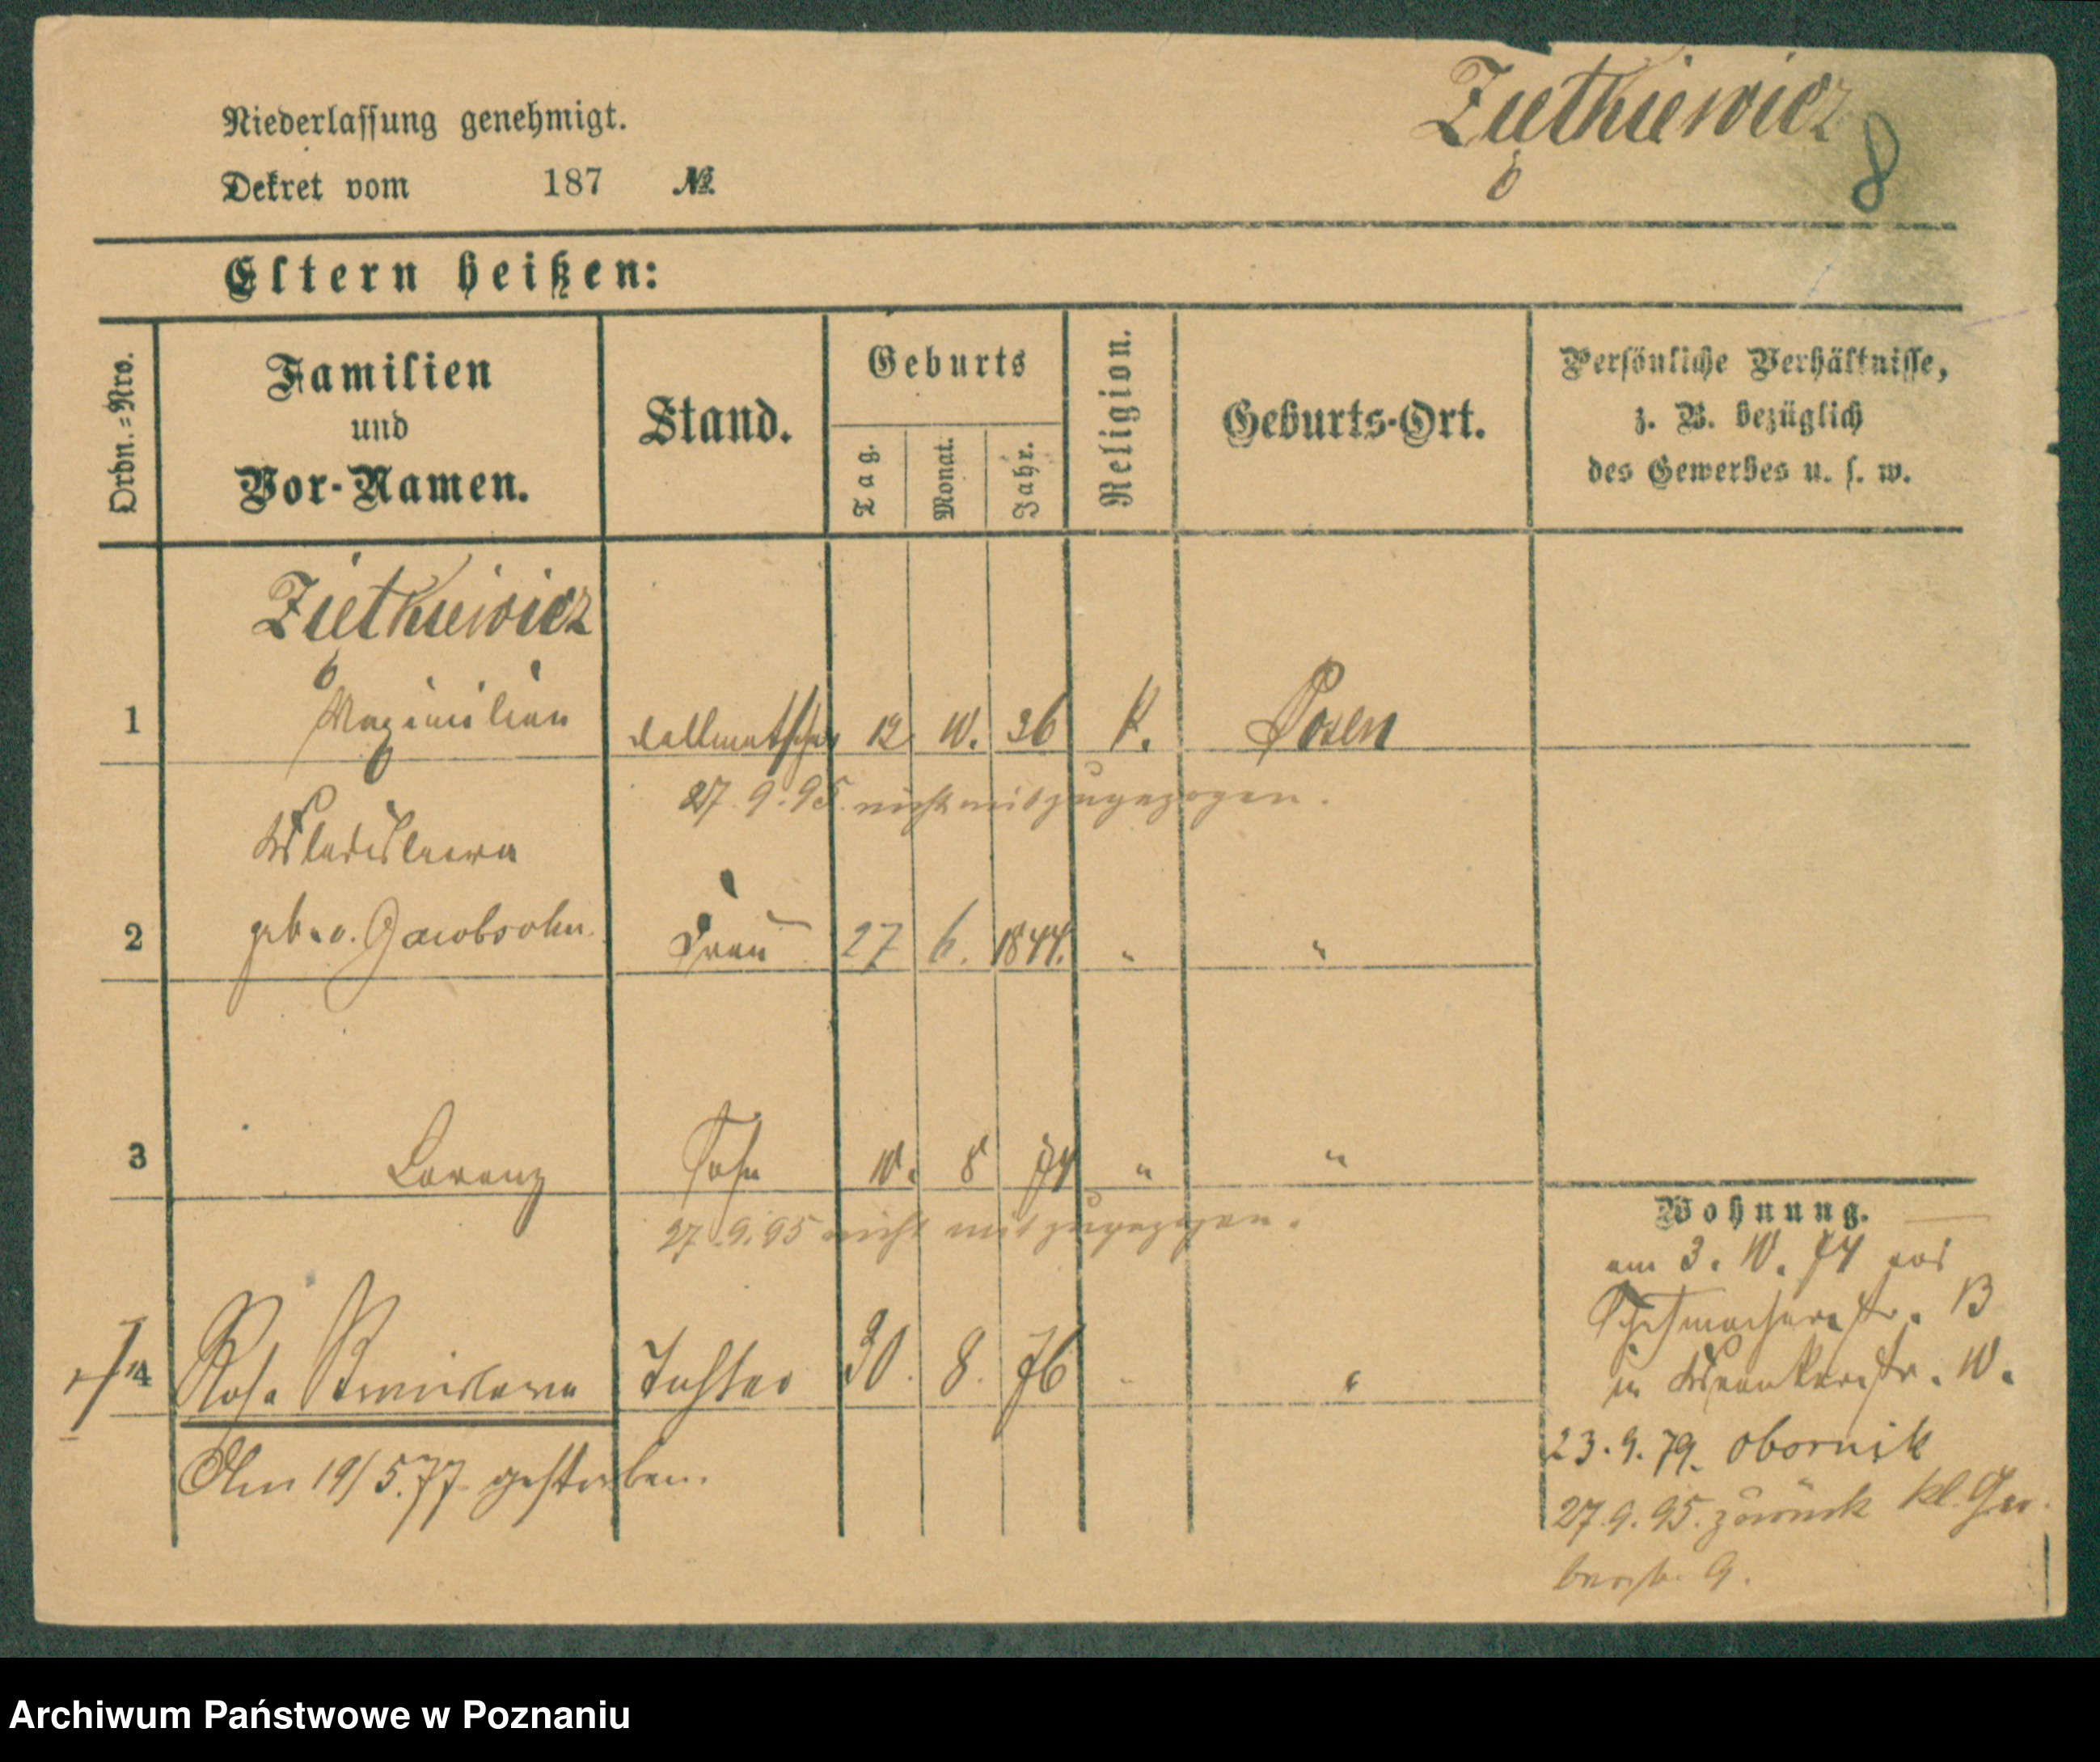 Ziętkiewicz
8
Niederlassung genehmigt.
Dekret vom 187 №
Eltern heißen:
Ordn.=Nro.
Familien
und
Vor-Namen.
Stand.
Geburts
Tag.
Monat.
Jahr.
Religion.
Geburts-Ort.
Persönliche Verhältnisse,
z. B. bezüglich
des Gewerbes u. s. w.
Ziętkiewicz
1 Maximilian 12 10. 36 K. Posen
27.9.95. nicht mit zugezogen.
Wladislawa
2 geb. v. Jacobsohn Frau 27 6. 1844. " "
3 Lorenz Sohn 10. 8 74 " "
27.9.95 nicht mit zugezogen.
4 Rosa Bronislawa Tochter 30. 8. 76 " "
Am 19/5.77. gestorben.
Wohnung.
am 3. 10. 74 aus
Schuhmacherstr. 13
in 10.
23.9.79. Obornik
27.9.95. zurück Kl. Ger
berstr. 9.